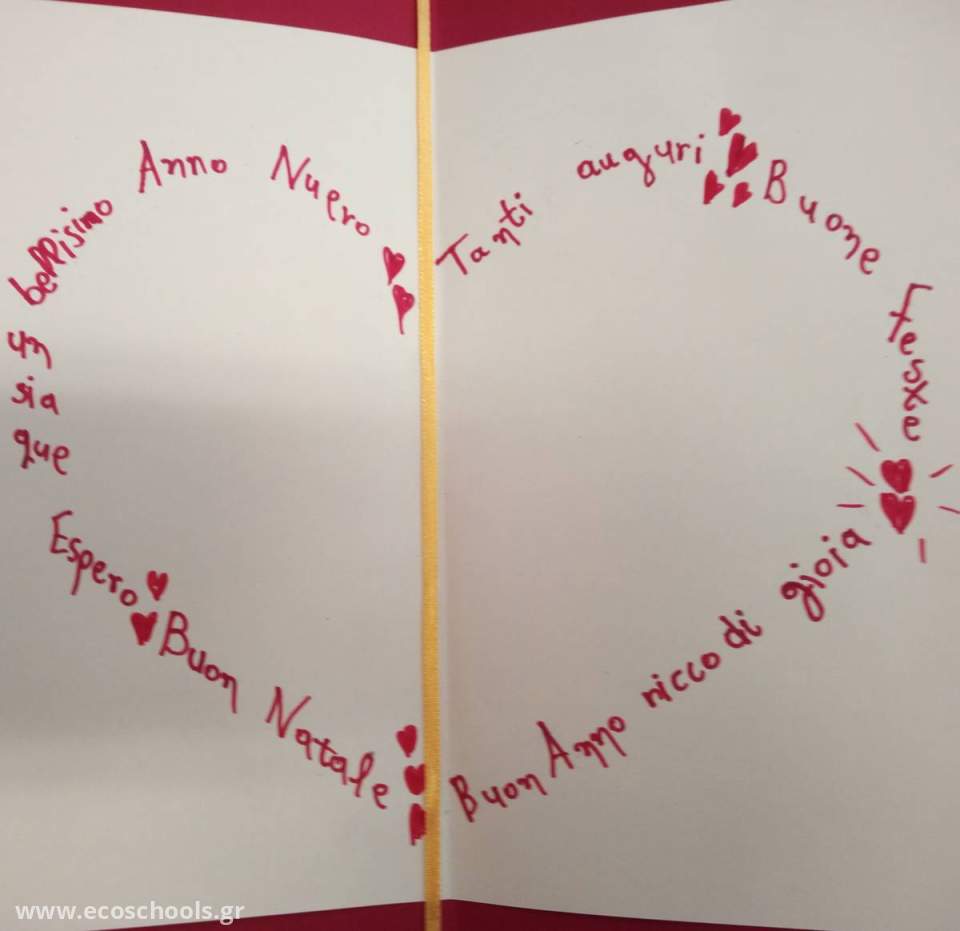 Espero que sia un bellisimo Anno Nuero
Tanti auguri
Buone Feste
Buon Natale
Buon Anno ricco di gioia
www.ecoschools.gr